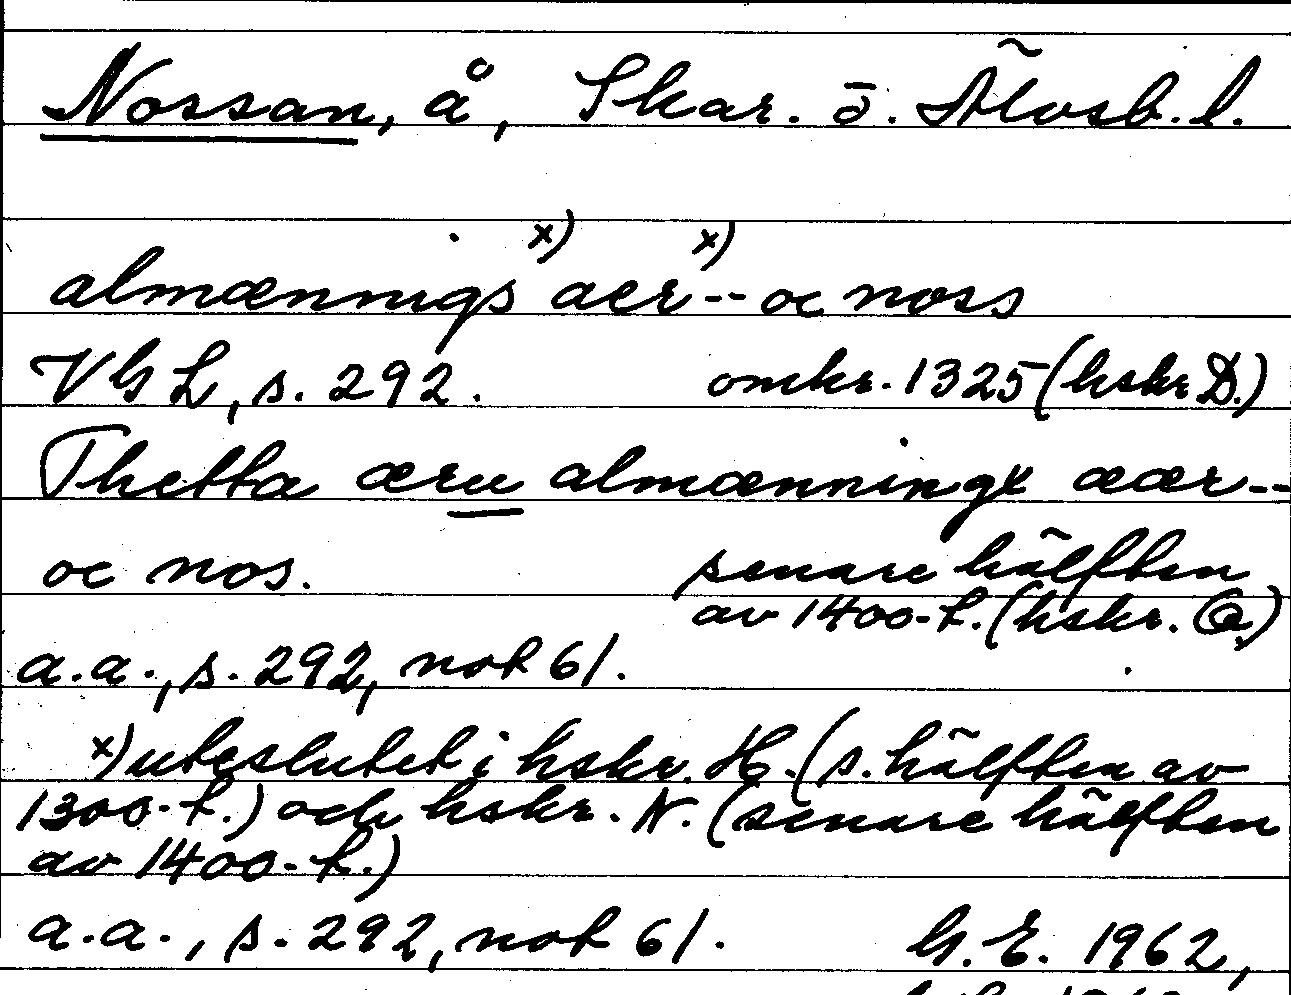 Nossan, å, Skar. o. Älvsb. l.
almænnigs x) aer x) -- oc noss
VGL, s. 292. omkr. 1325 (hskr. D.)
Thetta æru almænningx aær --
oc nos. senare hälften
av 1400-t. (hskr. Q.)
a.a., s. 292, not 61.
x) uteslutet i hskr. H. (s. hälften av
1300-t.) och hskr. N. (senare hälften
av 1400-t.)
a.a., s. 292, not 61. G. E. 1962,